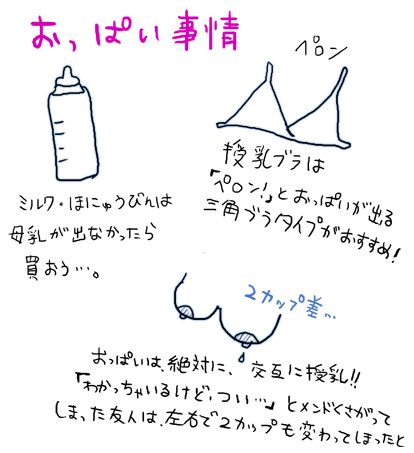 おっぱい事情
ペロン
授乳ブラは
「ペロン!」とおっぱいが出る
三角ブラタイプがおすすめ!
ミルク・ほにゅうびんは
母乳が出なかったら
買おう…。
2カップ差…
おっぱいは、絶対に、交互に授乳!!
「わかっちゃいるけど、つい…」とメンドくさがって
しまった友人は、左右で2カップも変わってしまったと